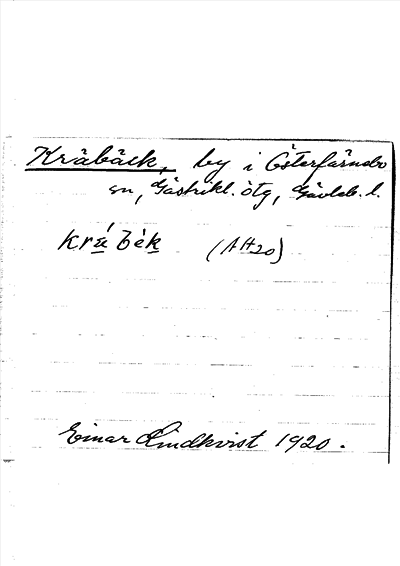 Kräbäck, by i Österfärnebo
sn, Gästrikl. ötg, Gävleb. l.
kräbek (AH20)
Einar Lindkvist 1920.